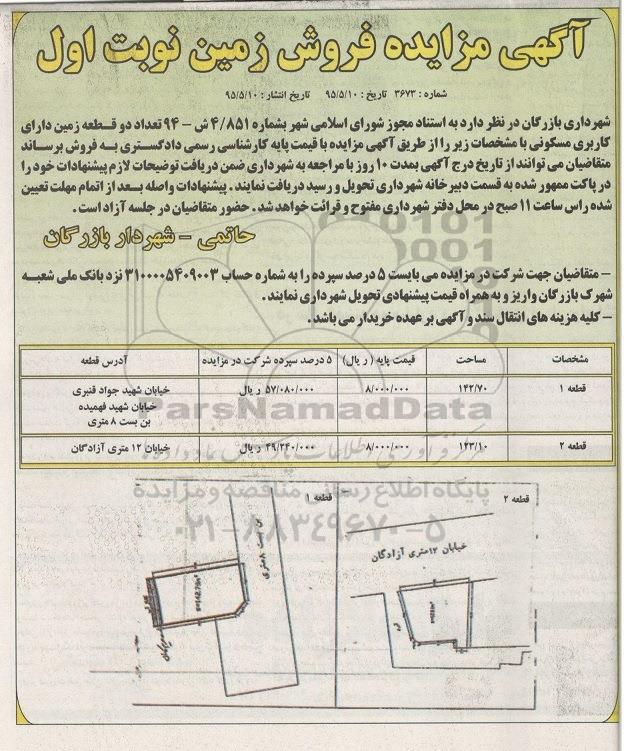 آگهی مزایده فروش زمین نوبت اول
شماره : ۳۶۷۳ تاریخ : ۹۵/۵/۱۰ تاریخ انتشار : ۹۵/۵/۱۰
شهرداری بازرگان در نظر دارد به استناد مجوز شورای اسلامی شهر بشماره ۴/۸۵۱ ش - ۹۴ تعداد دو قطعه زمین دارای
کاربری مسکونی با مشخصات زیر را از طریق آگهی مزایده با قیمت پایه کارشناسی رسمی دادگستری به فروش برساند
متقاضیان می توانند از تاریخ درج آگهی بمدت ۱۰ روز با مراجعه به شهرداری ضمن دریافت توضیحات لازم پیشنهادات خود را
در پاکت ممهور شده به قسمت دبیر خانه شهرداری تحویل و رسید دریافت نمایند . پیشنهادات واصله بعد از اتمام مهلت تعیین
شده راس ساعت ۱۱ صبح در محل دفتر شهرداری مفتوح و قرائت خواهد شد . حضور متقاضیان در جلسه آزاد است .
حاتمی - شهردار بازرگان
- متقاضیان جهت شرکت در مزایده می بایست ۵ درصد سپرده را به شماره حساب ۳۱۰۰۰۰۵۴۰۹۰۰۳ نزد بانک ملی شعبه
شهرک بازرگان واریز و به همراه قیمت پیشنهادی تحویل شهرداری نمایند .
- کلیه هزینه های انتقال سند و آگهی بر عهده خریدار می باشد .
مشخصات مساحت قیمت پایه ( ریال) ۵ درصد سپرده شرکت در مزایده آدرس قطعه
قطعه ۱ ۱۴۲/۷۰ ۸/۰۰۰/۰۰۰ ۵۷/۰۸۰/۰۰۰ ریال خیابان شهید جواد قنبری
خیابان شهید فهمیده
بن بست ۸ متری
قطعه ۲ ۱۲۳/۱۰ ۸/۰۰۰/۰۰۰ ۴۹/۲۴۰/۰۰۰ ریال خیابان ۱۲ متری آزادگان
ParsNamadData
پایگاه اطلاع رسانی مناقصه و مزایده
۰۲۱-۸۸۳۴۹۶۷۰-۵
قطعه ۲
قطعه ۱
خیابان ۱۲متری آزادگان
بن بست ۸متری